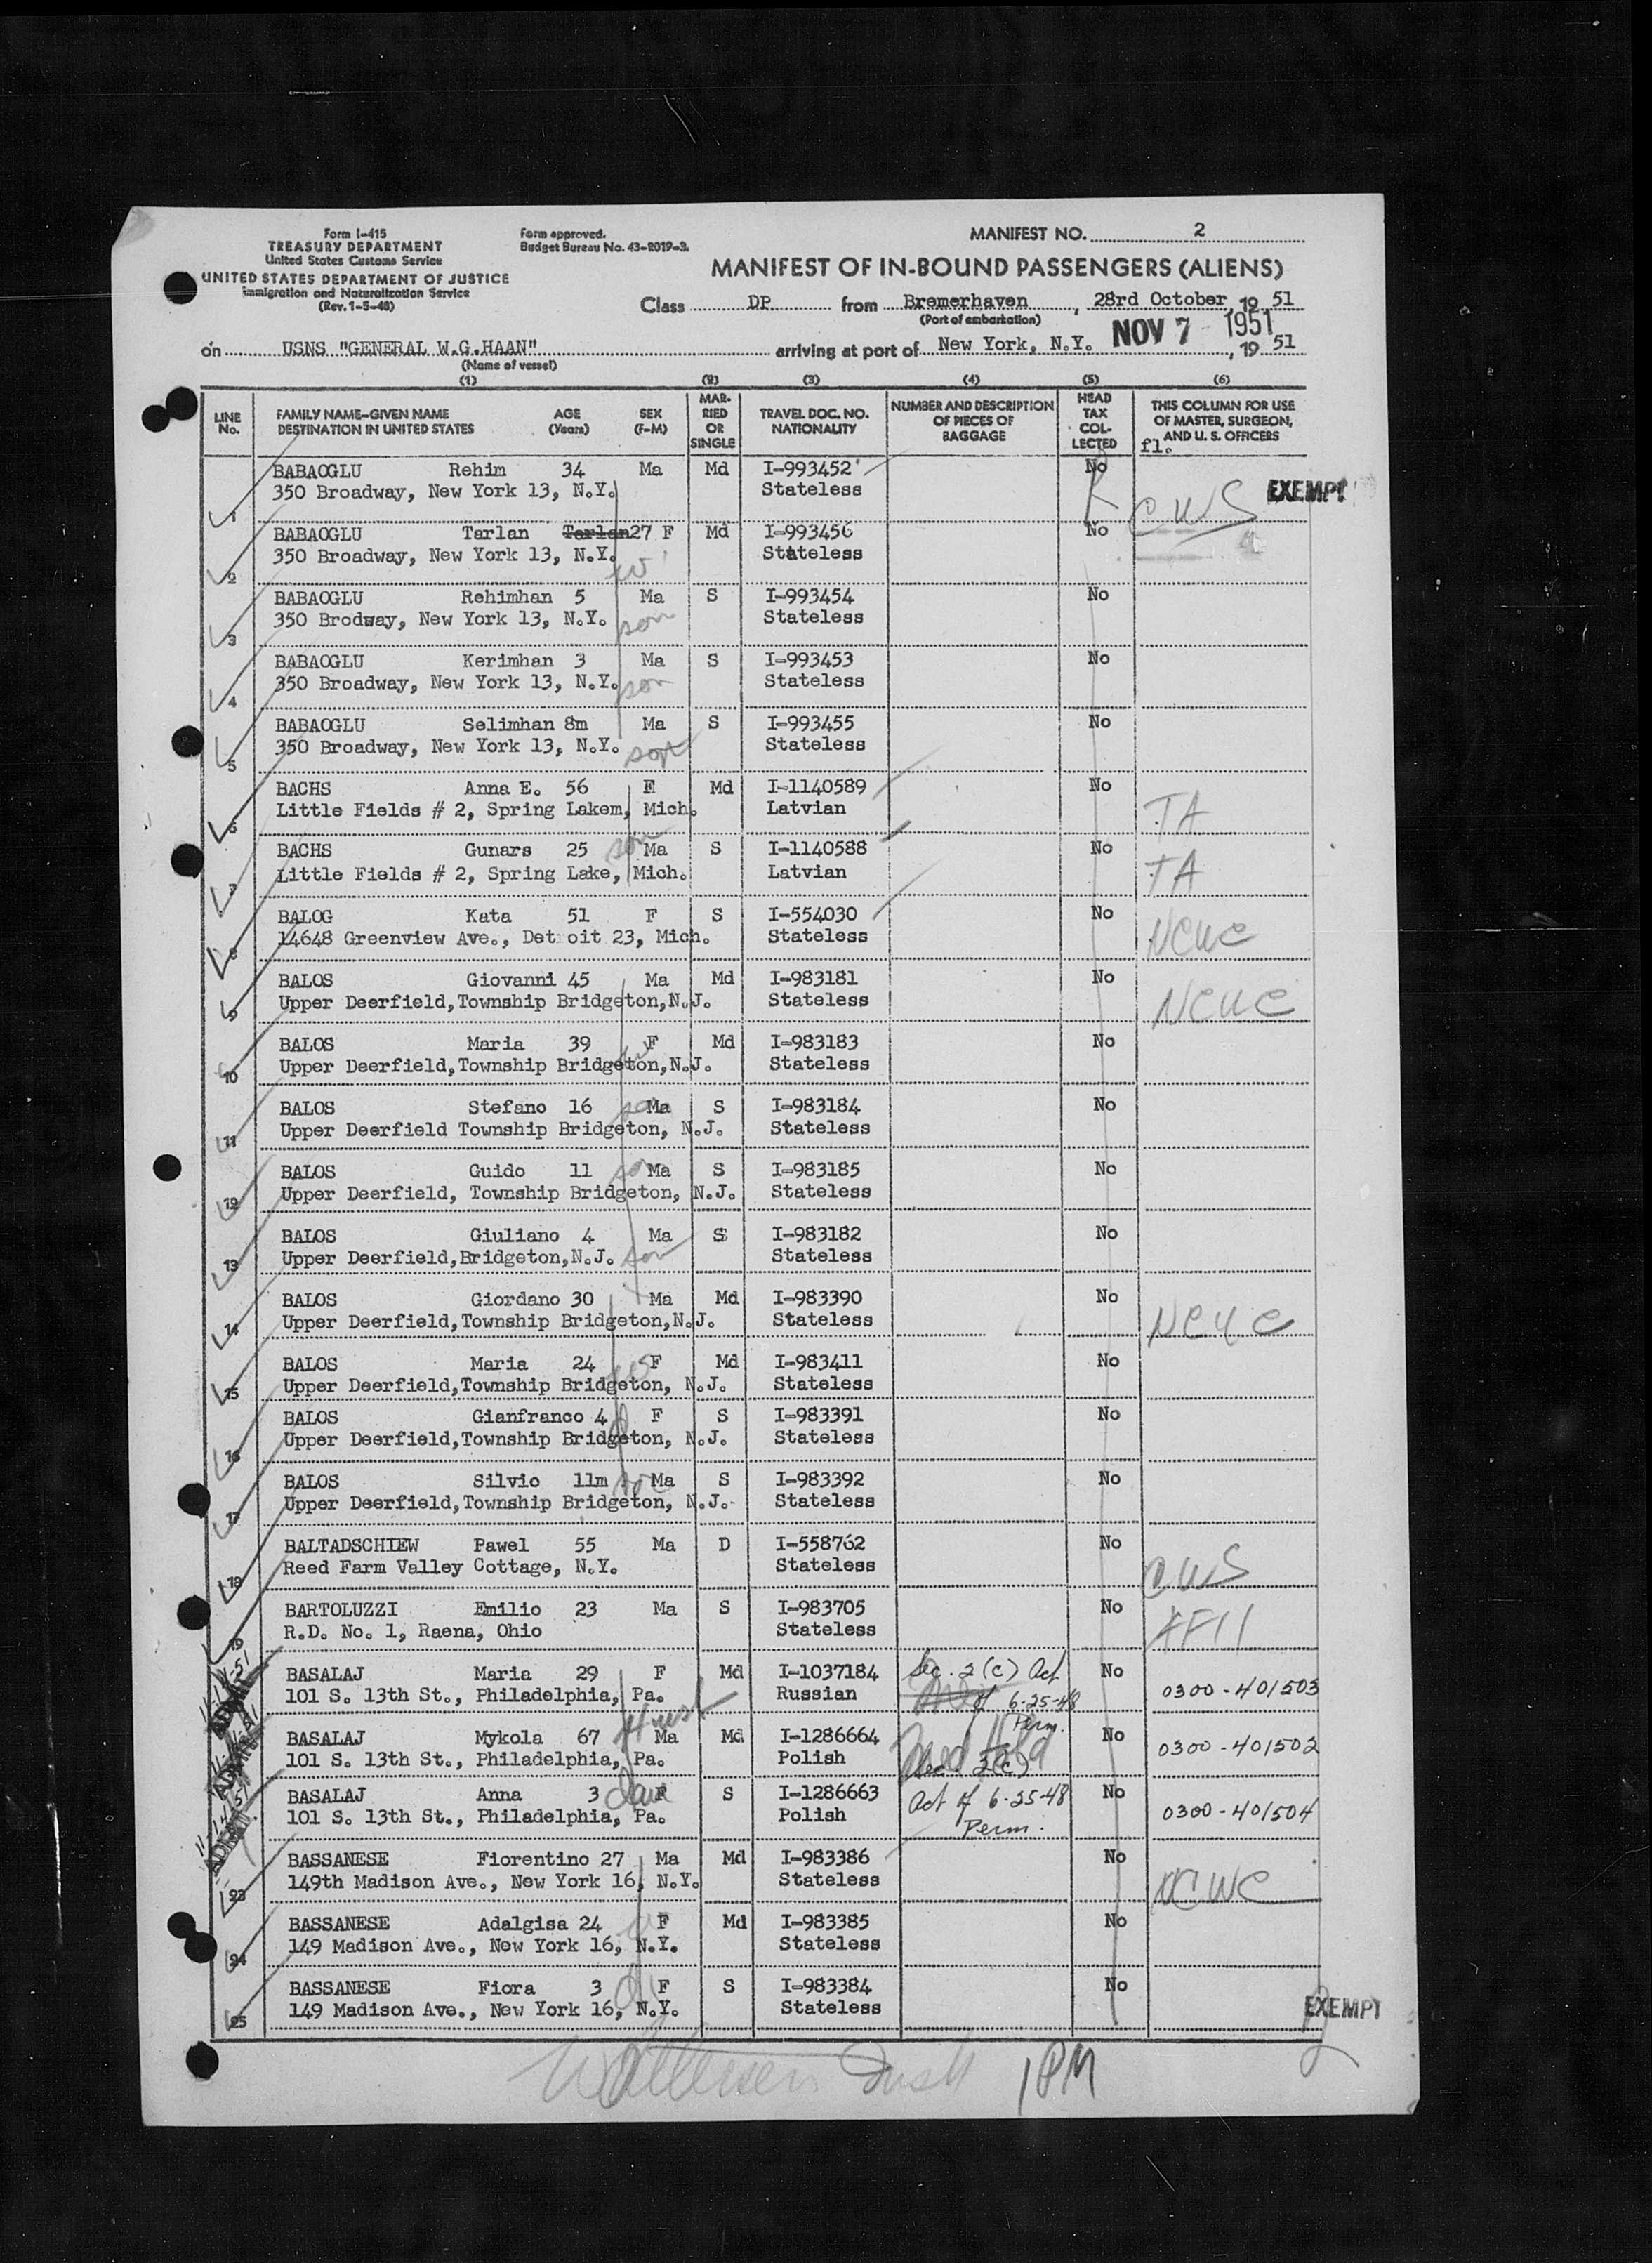 Form I-415
TREASURY DEPARTMENT
United States Customs Service
UNITED STATES DEPARTMENT OF JUSTICE
Immigration and Naturalization Service
(Rev. 1-5-48)
Form approved.
Budget Bureau No. 43-R019-3.
MANIFEST NO. 2
MANIFEST OF IN-BOUND PASSENGERS (ALIENS)
Class DP from Bremerhaven, 28rd October, 19 51
(Port of embarkation)
on USNS "GENERAL W.G.HAAN" arriving at port of New York, N.Y. NOV 7 1951, 19 51
(Name of vessel)
(1) (2) (3) (4) (5) (6)
LINE No. FAMILY NAME-GIVEN NAME DESTINATION IN UNITED STATES AGE (Years) SEX (F-M) MARRIED OR SINGLE TRAVEL DOC. NO. NATIONALITY NUMBER AND DESCRIPTION OF PIECES OF BAGGAGE HEAD TAX COLLECTED THIS COLUMN FOR USE OF MASTER, SURGEON, AND U. S. OFFICERS
fl.
BABAOGLU Rehim 34 Ma Md I-993452 No EXEMPT
1 350 Broadway, New York 13, N.Y. Stateless CWS
BABAOGLU Tarlan Tarlan 27 F Md I-993456 No
2 350 Broadway, New York 13, N.Y. w Stateless
BABAOGLU Rehimhan 5 Ma S I-993454 No
3 350 Brodway, New York 13, N.Y. son Stateless
BABAOGLU Kerimhan 3 Ma S I-993453 No
4 350 Broadway, New York 13, N.Y. son Stateless
BABAOGLU Selimhan 8m Ma S I-993455 No
5 350 Broadway, New York 13, N.Y. son Stateless
BACHS Anna E. 56 F Md I-1140589 No
6 Little Fields # 2, Spring Lakem, Mich. Latvian TA
BACHS Gunars 25 son Ma S I-1140588 No
7 Little Fields # 2, Spring Lake, Mich. Latvian TA
BALOG Kata 51 F S I-554030 No
8 14648 Greenview Ave., Detroit 23, Mich. Stateless NCWC
BALOS Giovanni 45 Ma Md I-983181 No
9 Upper Deerfield,Township Bridgeton,N.J. Stateless NCWC
BALOS Maria 39 w F Md I-983183 No
10 Upper Deerfield,Township Bridgeton,N.J. Stateless
BALOS Stefano 16 son Ma S I-983184 No
11 Upper Deerfield Township Bridgeton, N.J. Stateless
BALOS Guido 11 son Ma S I-983185 No
12 Upper Deerfield, Township Bridgeton, N.J. Stateless
BALOS Giuliano 4 Ma S I-983182 No
13 Upper Deerfield,Bridgeton,N.J. son Stateless
BALOS Giordano 30 Ma Md I-983390 No
14 Upper Deerfield,Township Bridgeton,N.J. Stateless NCWC
BALOS Maria 24 w F Md I-983411 No
15 Upper Deerfield,Township Bridgeton, N.J. Stateless
BALOS Gianfranco 4 d F S I-983391 No
16 Upper Deerfield,Township Bridgeton, N.J. Stateless
BALOS Silvio 11m son Ma S I-983392 No
17 Upper Deerfield,Township Bridgeton, N.J. Stateless
BALTADSCHIEW Pawel 55 Ma D I-558762 No
18 Reed Farm Valley Cottage, N.Y. Stateless CWS
BARTOLUZZI Emilio 23 Ma S I-983705 No
19 R.D. No. 1, Raena, Ohio Stateless
BASALAJ Maria 29 F Md I-1037184 Sec. 2(c) Act No
101 S. 13th St., Philadelphia, Pa. Russian of 6-25-48 0300-401503
Perm.
BASALAJ Mykola 67 Husb Ma Md I-1286664 Med Hold No
101 S. 13th St., Philadelphia, Pa. Polish Sec. 2(c) 0300-401502
BASALAJ Anna 3 dau F S I-1286663 Act of 6-25-48 No
101 S. 13th St., Philadelphia, Pa. Polish Perm. 0300-401504
BASSANESE Fiorentino 27 Ma Md I-983386 No
23 149th Madison Ave., New York 16, N.Y. Stateless NCWC
BASSANESE Adalgisa 24 w F Md I-983385 No
24 149 Madison Ave., New York 16, N.Y. Stateless
BASSANESE Fiora 3 d F S I-983384 No
25 149 Madison Ave., New York 16, N.Y. Stateless EXEMPT
1 PM